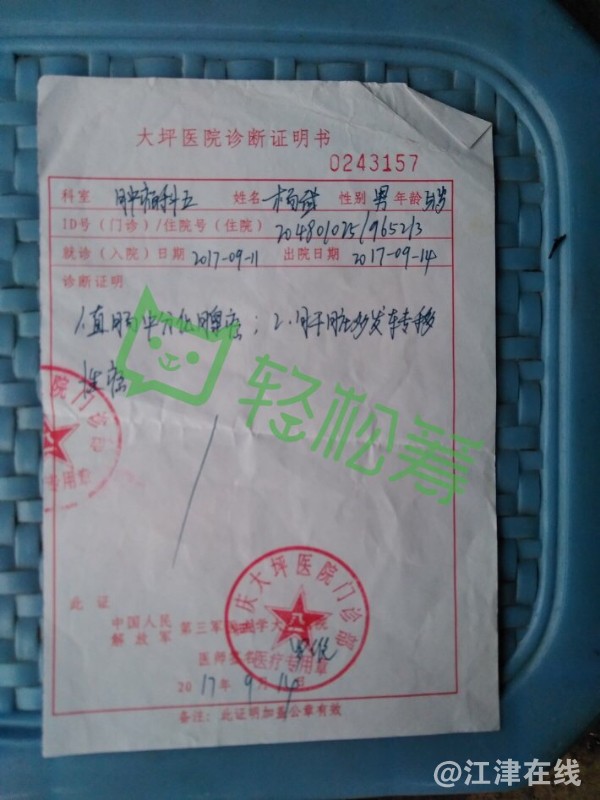 大坪医院诊断证明书
0243157
科室 肿瘤科五 姓名 杨 性别 男 年龄
ID号(门诊)/住院号(住院)
就诊(入院)日期 2017-09-11 出院日期 2017-09-14
诊断证明
1.直肠中分化腺癌；2.肝脏多发转移
性癌
轻松筹
院门诊部
专用章
此证
中国人民
解放军 第三军医大学大坪医院
重庆大坪医院门诊部
八一
医师签名
医疗专用章
2017年9月14日
备注:此证明加盖公章有效
@江津在线